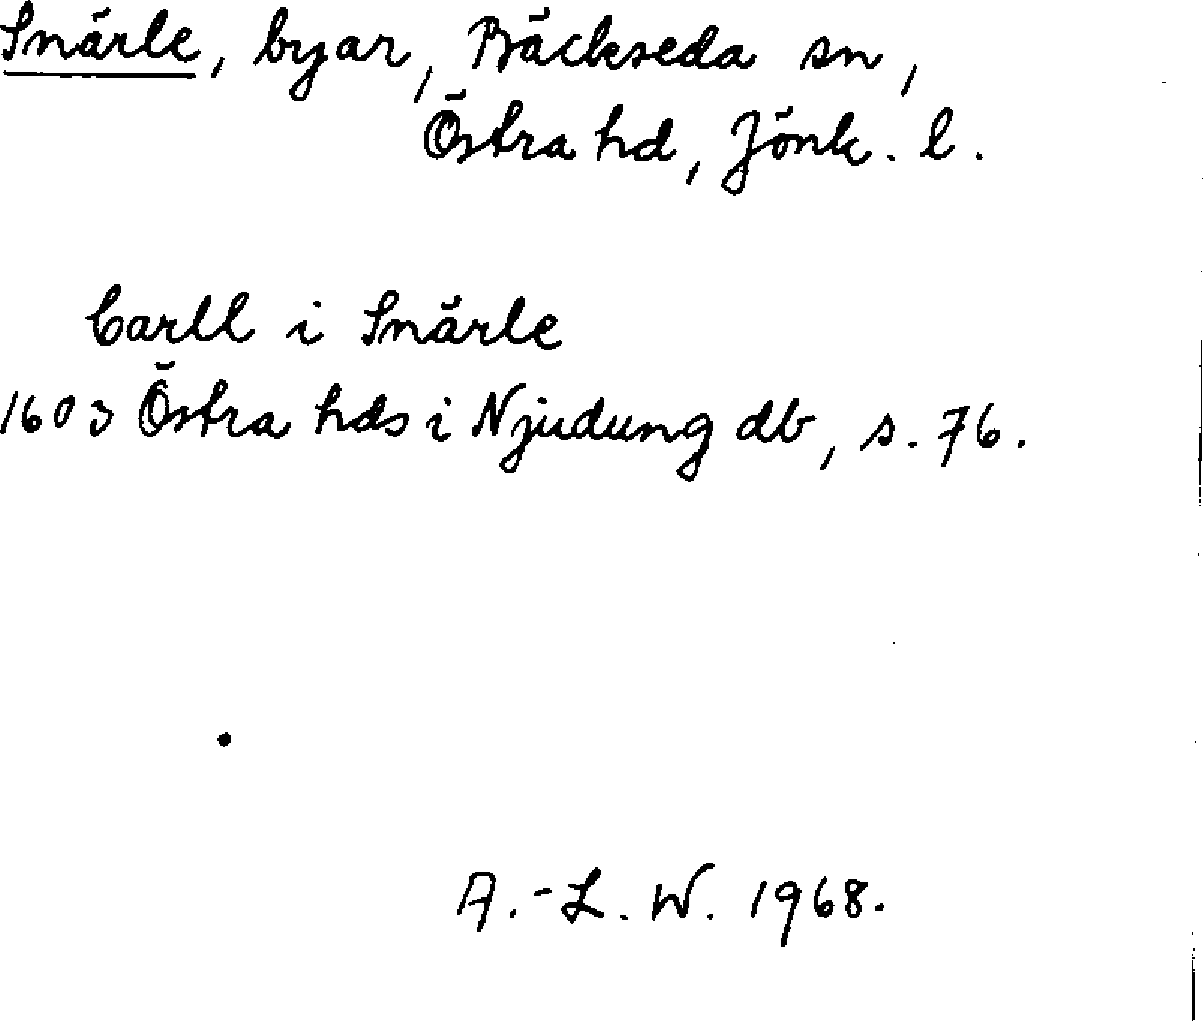 Snärle, byar, Bäckseda sn,
Östra hd, Jönk. l.
Carll i Snärle
1603 Östra hds i Njudung db, s. 76.
A.-L. W. 1968.